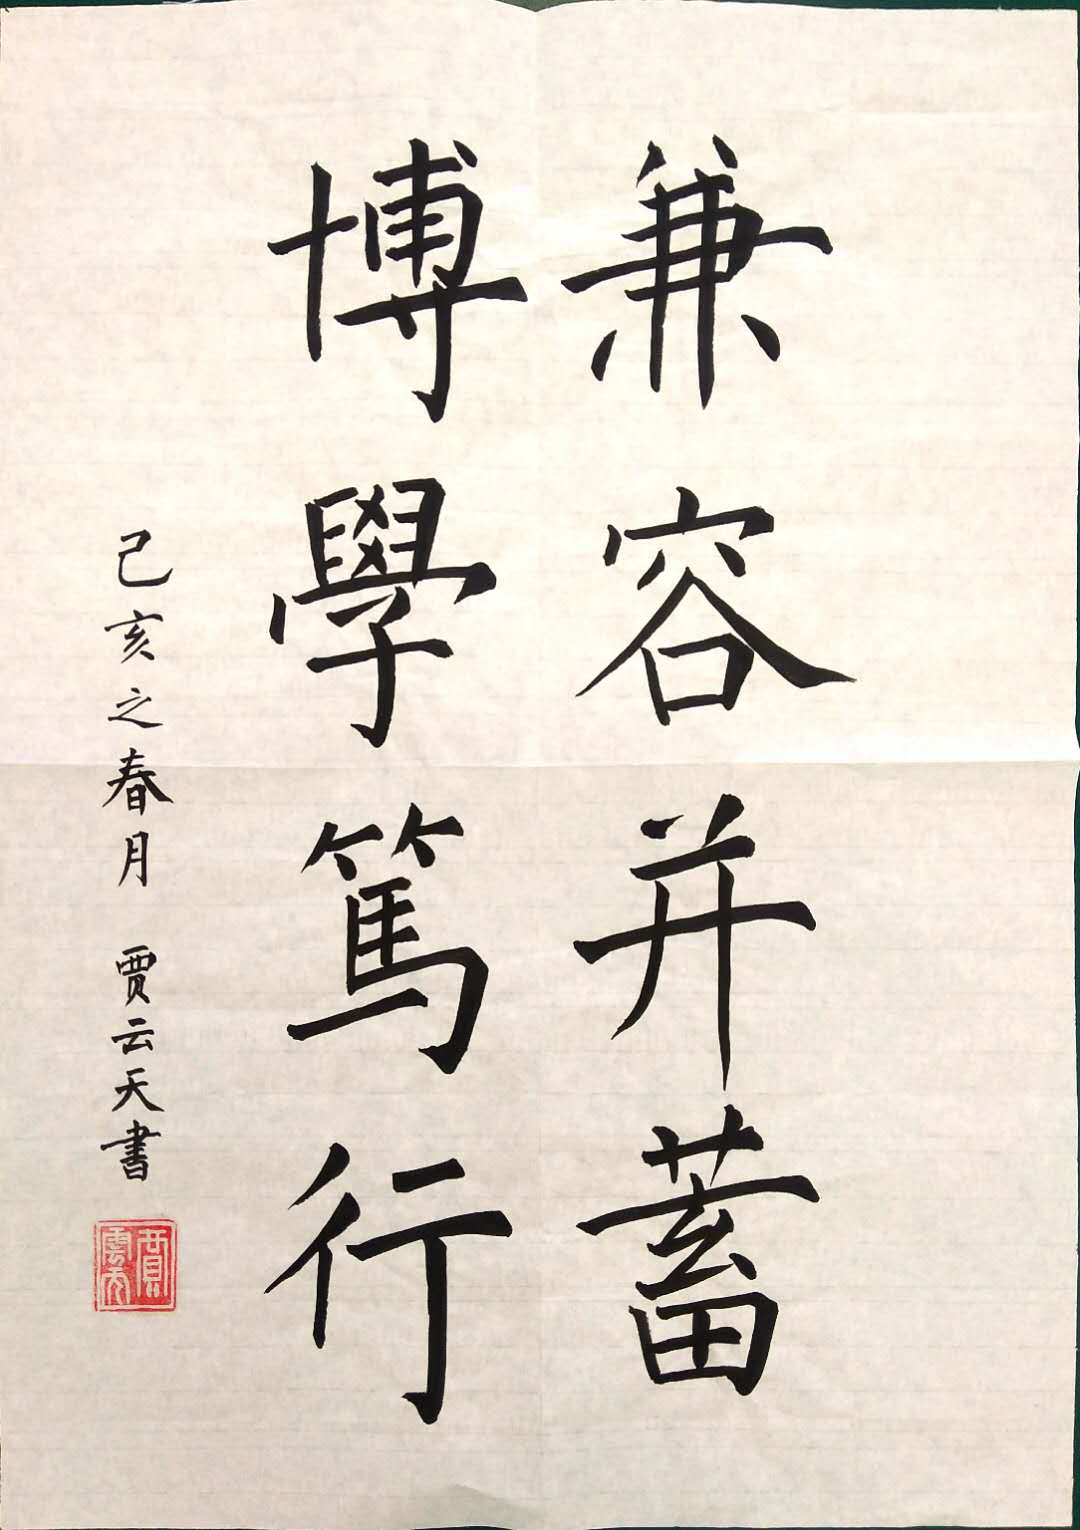 兼容并蓄
博學篤行
己亥之春月 贾云天書
賈雲天